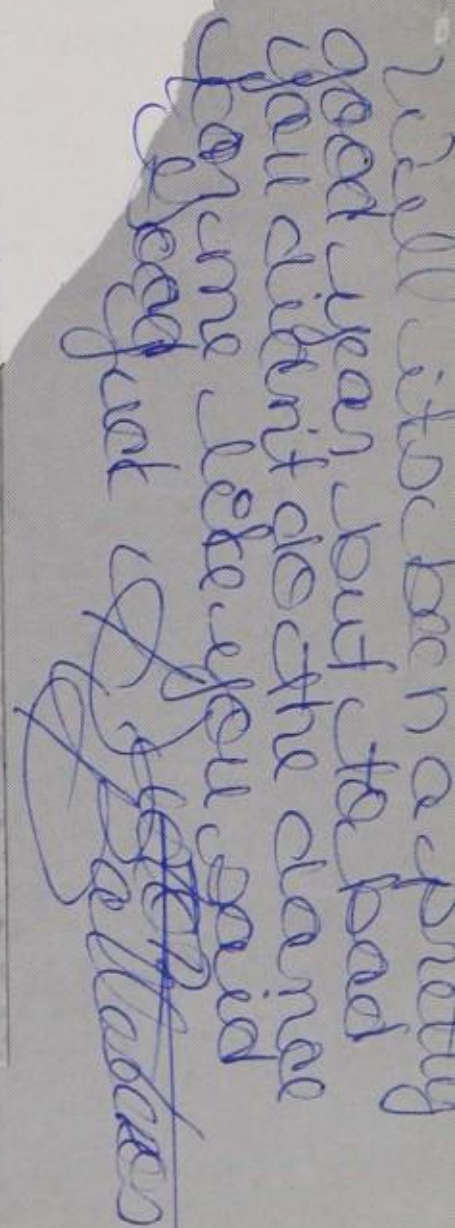 Well its been a pretty
good year but to bad
you didn't do the dance
for me like you said